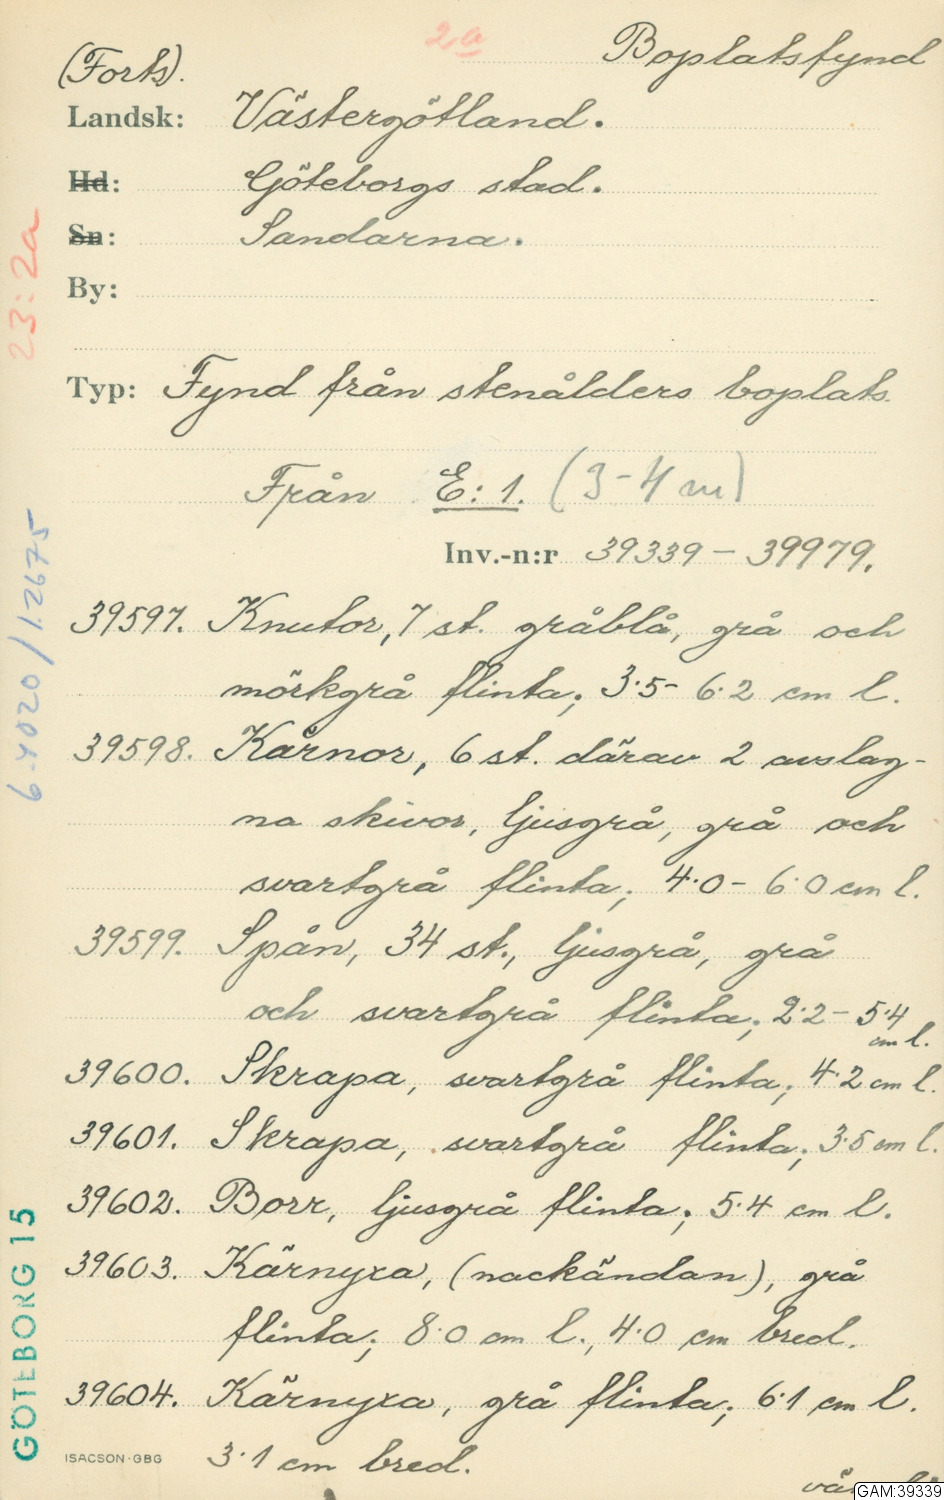 2a
Boplatsfynd
(Forts).
Landsk: Västergötland.
Hd: Göteborgs stad.
Sn: Sandarna.
By:
Typ: Fynd från stenålders boplats.
Från E: 1. (3-4 m)
Inv.-n:r 39339 – 39979.
39597. Knutor, 7 st. gråblå, grå och
mörkgrå flinta; 3·5- 6·2 cm l.
39598. Kärnor, 6 st. därav 2 avslag-
na skivor, ljusgrå, grå och
svartgrå flinta; 4·0- 6·0 cm l.
39599. Spån, 34 st., ljusgrå, grå
och svartgrå flinta; 2·2- 5·4
cm l.
39600. Skrapa, svartgrå flinta; 4·2 cm l.
39601. Skrapa, svartgrå flinta; 3·5 cm l.
39602. Borr, ljusgrå flinta; 5·4 cm l.
39603. Kärnyxa, (nackändan), grå
flinta; 8·0 cm l., 4·0 cm bred.
39604. Kärnyxa, grå flinta; 6·1 cm l.
3·1 cm bred.
ISACSON·GBG
GAM:39339
23:2a
6-4020/12675
GÖTEBORG 15